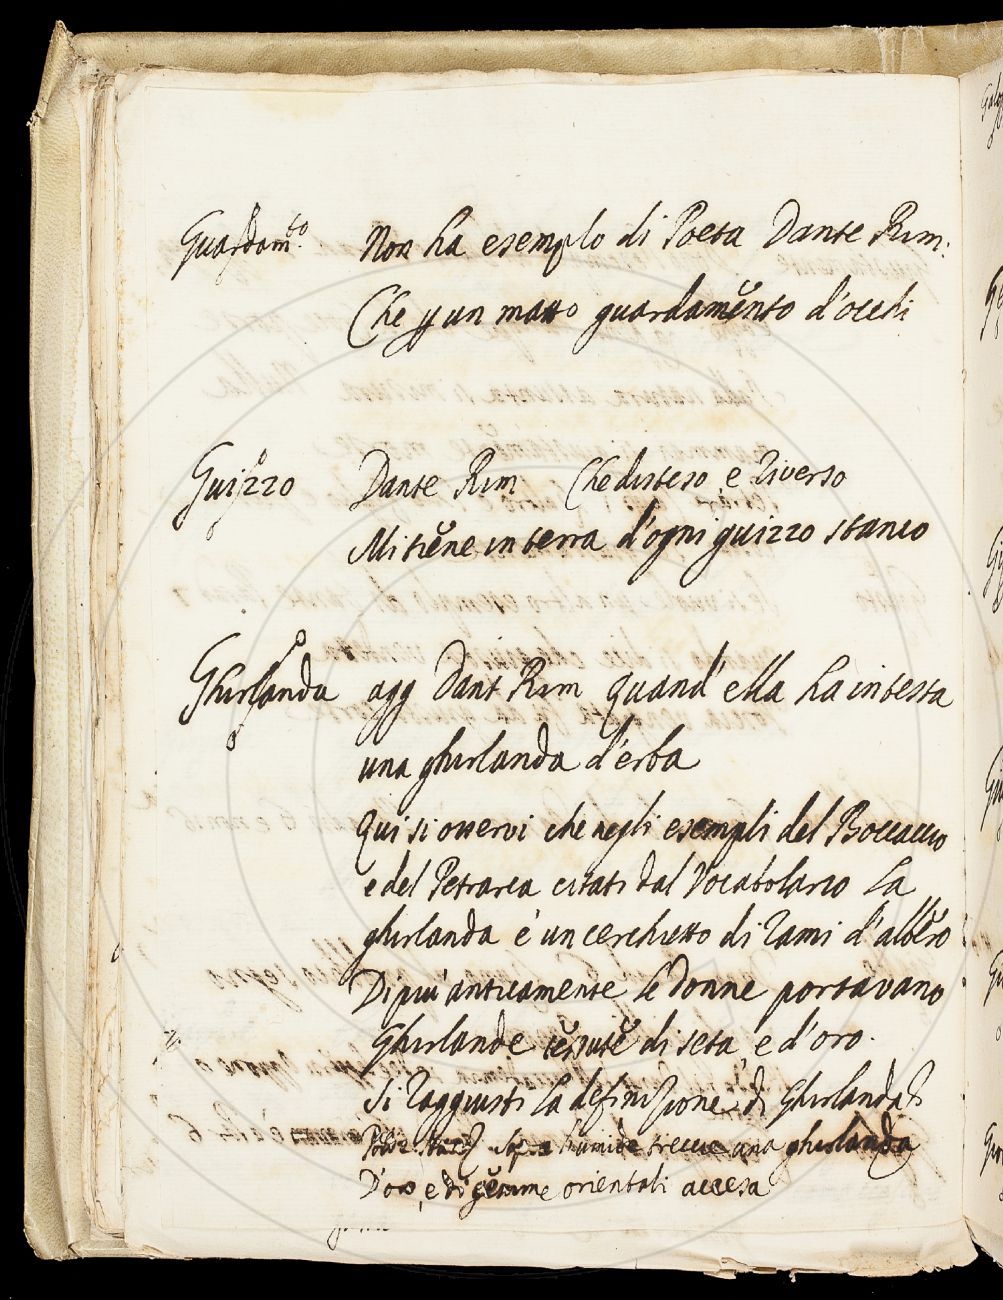 Guardam.to Non ha esemplo di Poeta Dante Rim.
Che p un matto guardamento d'occhi
Guizzo Dante Rim Che disteso, e riverso
Mi tiene in terra d'ogni guizzo stanco
Ghirlanda agg Dant Rim quand' ella ha in testa
una ghirlanda d'erba
Qui si osservi che negli esempli del Boccaccio
e del Petrarca citati dal Vocabolario la
ghirlanda è un cerchietto di rami d'albero
Di più anticamente le donne portavano
Ghirlande tessute di seta, e d'oro.
Si raggiusti la definizione di Ghirlanda
humide treccie una ghirlanda
D'oro, e di gemme orientali accesa